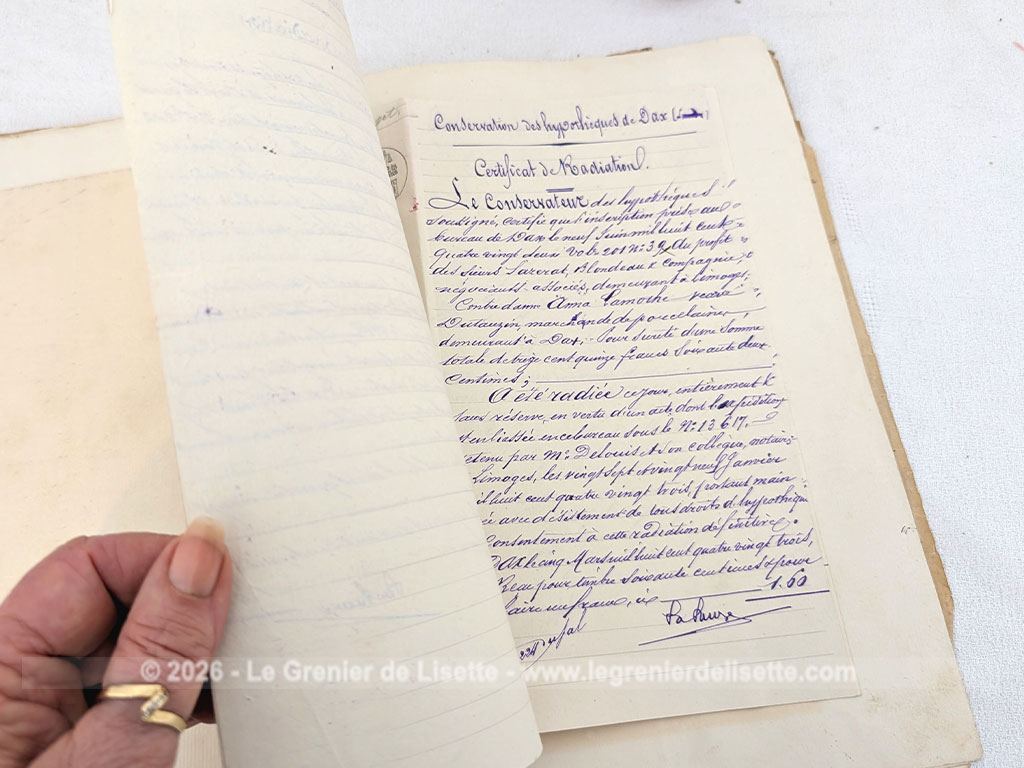 Conservation des hypothèques de Dax
Certificat de Radiation.
Le Conservateur des hypothèques
soussigné, certifie que l'inscription prise au
bureau de Dax le neuf Juin mil huit cent
quatre vingt deux Vol. 201 N° 39 au profit
des sieurs Lazerat, Blondeau & Compagnie,
négociants associés, demeurant à Limoges,
Contre dame Anna Lamothe veuve
Dutauzin, marchande de porcelaines
demeurant à Dax, Pour sûreté d'une somme
totale de treize cent quinze francs soixante deux
centimes;
A été radiée ce jour, entièrement &
sans réserve, en vertu d'un acte dont l'expédition
est en liasse en ce bureau sous le N° 13617.
etenu par Me Delouis & son collègue, notaires
Limoges, les vingt sept & vingt neuf Janvier
il huit cent quatre vingt trois, portant main
ée avec désistement de tous droits d'hypothèque
consentement à cette radiation définitive.
Dax le cinq Mars mil huit cent quatre vingt trois,
Reçu pour timbre soixante centimes & pour
laire un franc, ci 1.60
© 2026 - Le Grenier de Lisette - www.legrenierdelisette.com